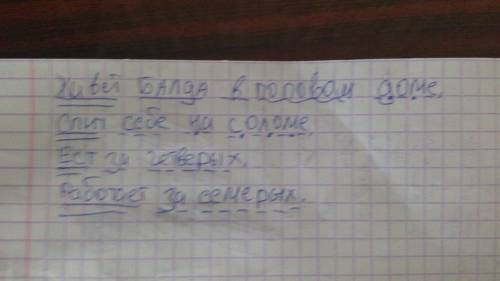 Живёт Балда в поповом доме,
Спит себе на соломе,
Ест за четверых,
Работает за семерых.